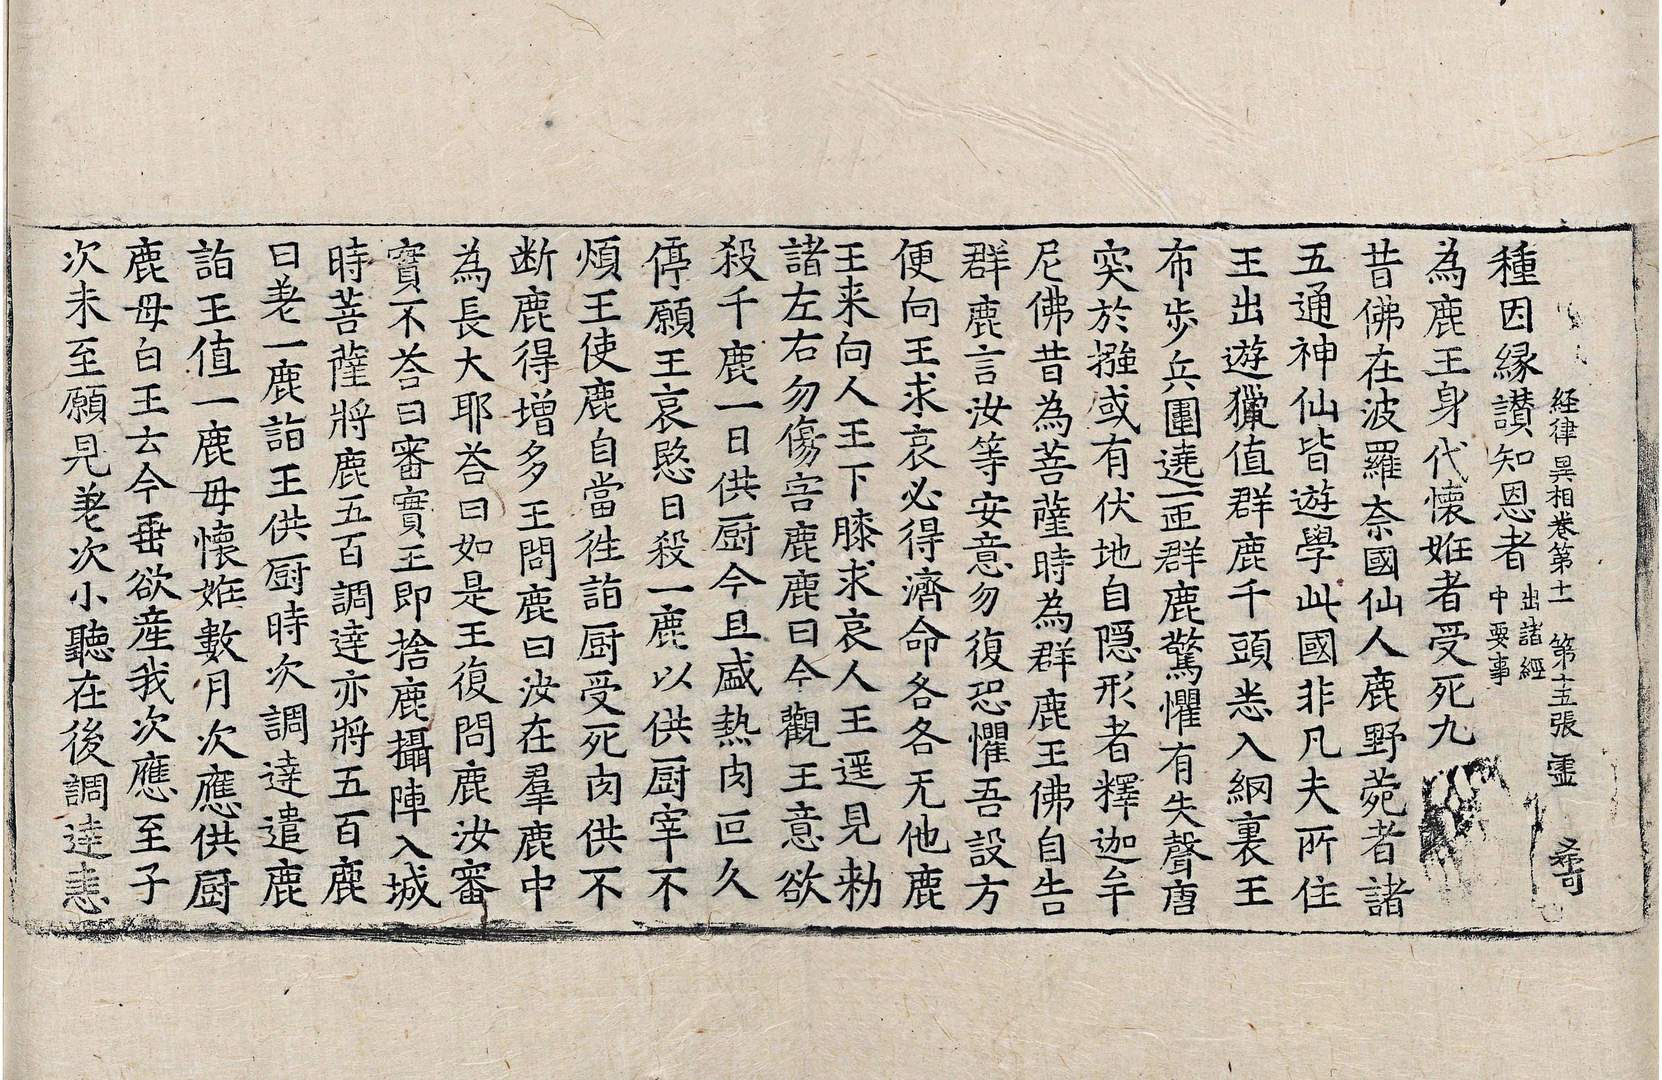 経律異相卷第十一　第十五張　靈
種因緣讃知恩者出諸經中要事
為鹿王身代懷姙者受死九
昔佛在波羅奈國仙人鹿野菀者諸
五通神仙皆遊學此國非凡夫所住
王出遊獵值群鹿千頭悉入網裏王
布步兵圍遶一匝群鹿驚懼有失聲唐
突於㨢或有伏地自隱形者釋迦牟
尼佛昔為菩薩時為群鹿王佛自告
群鹿言汝等安意勿復恐懼吾設方
便向王求哀必得濟命各各无他鹿
王来向人王下膝求哀人王遥見勑
諸左右勿傷害鹿鹿曰今觀王意欲
殺千鹿一日供厨今且盛熱肉叵久
停願王哀愍日殺一鹿以供厨宰不
煩王使鹿自當徃詣厨受死肉供不
断鹿得增多王問鹿曰汝在羣鹿中
為長大耶荅曰如是王復問鹿汝審
實不荅曰審實王即捨鹿攝陣入城
時菩薩將鹿五百調達亦將五百鹿
日差一鹿詣王供厨時次調達遣鹿
詣王值一鹿母懷姙數月次應供厨
鹿母白王去今垂欲産我次應至子
次未至願見差次小聽在後調達恚